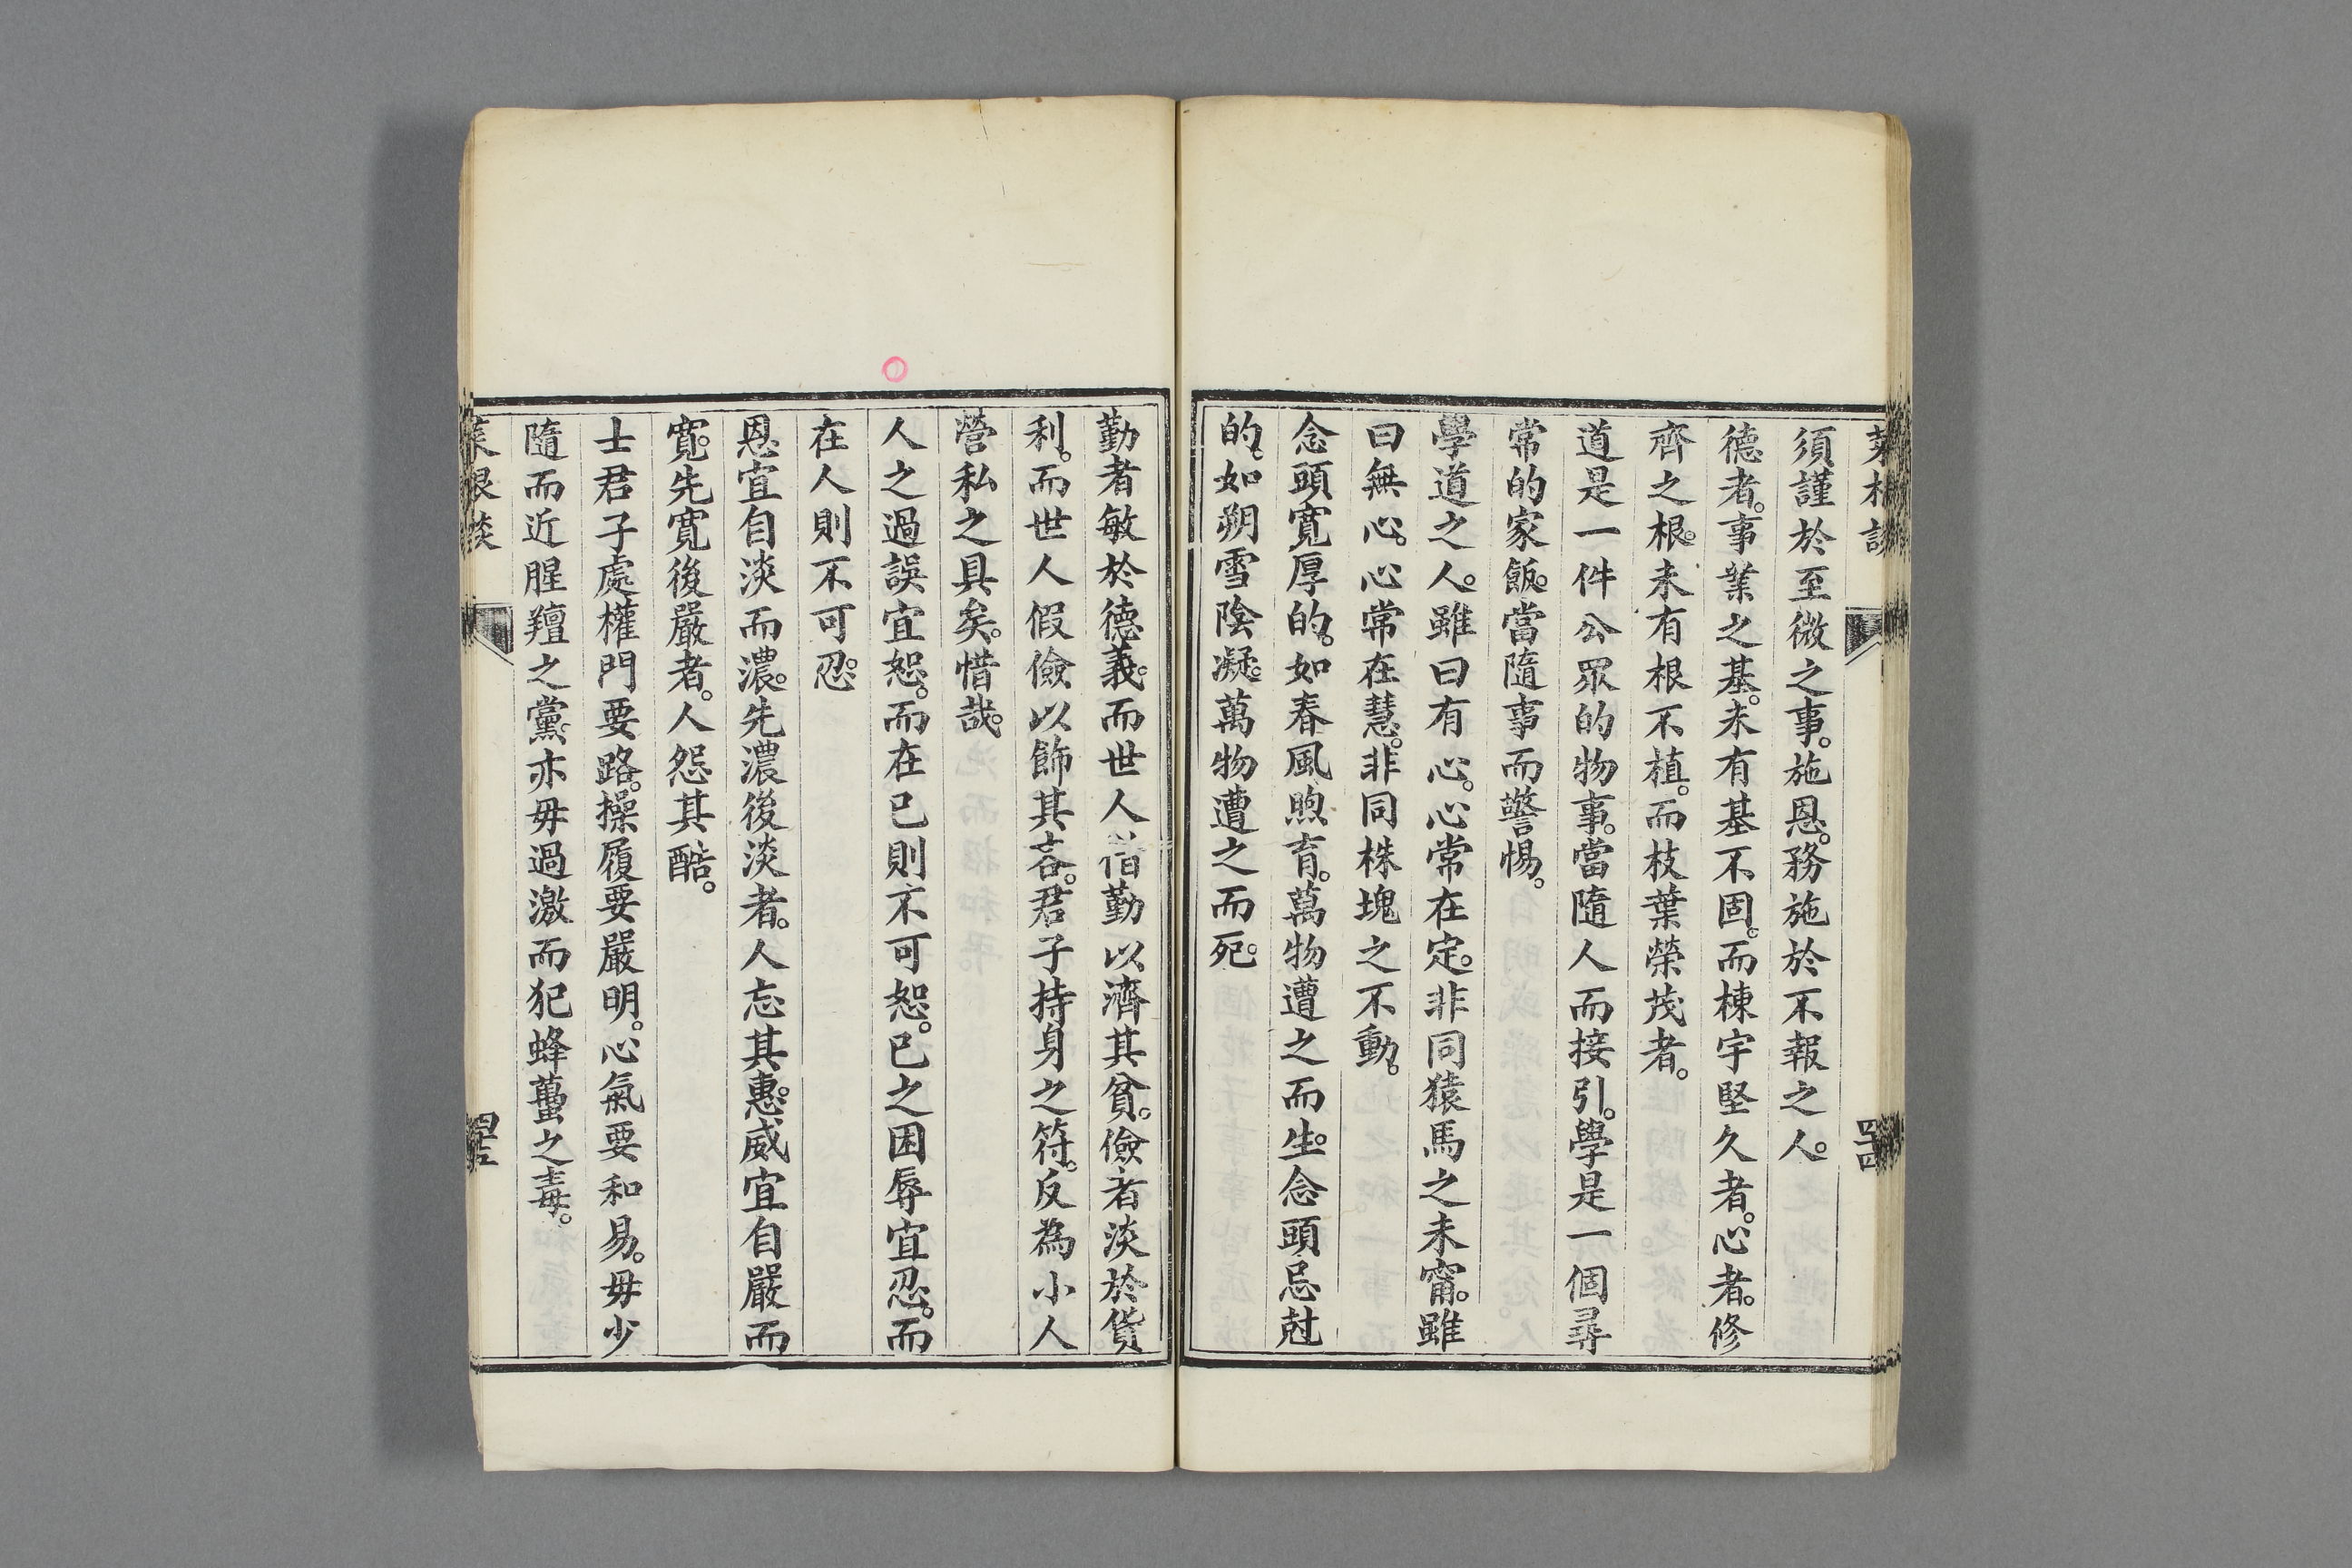 菜根談
須謹於至微之事。施恩。務施於不報之人。
德者。事業之基。未有基不固。而棟宇堅久者。心者。修
齊之根。未有根不植。而枝葉榮茂者。
道是一件公眾的物事。當隨人而接引。學是一個尋
常的家飯。當隨事而警惕。
學道之人。雖曰有心。心常在定。非同猿馬之未甯。雖
曰無心。心常在慧。非同株塊之不動。
念頭寬厚的。如春風煦育。萬物遭之而生。念頭忌尅
的。如朔雪陰凝。萬物遭之而死。
勤者敏於德義。而世人借勤以濟其貧。儉者淡於貨
利。而世人假儉以飾其吝。君子持身之符。反為小人
營私之具矣。惜哉。
人之過誤宜恕。而在已則不可恕。已之困辱宜忍。而
在人則不可忍。
恩宜自淡而濃。先濃後淡者。人忘其惠。威宜自嚴而
寬。先寬後嚴者。人怨其酷。
士君子處權門要路。操履要嚴明。心氣要和易。毋少
隨而近腥羶之黨。亦毋過激而犯蜂蠆之毒。
菜根談